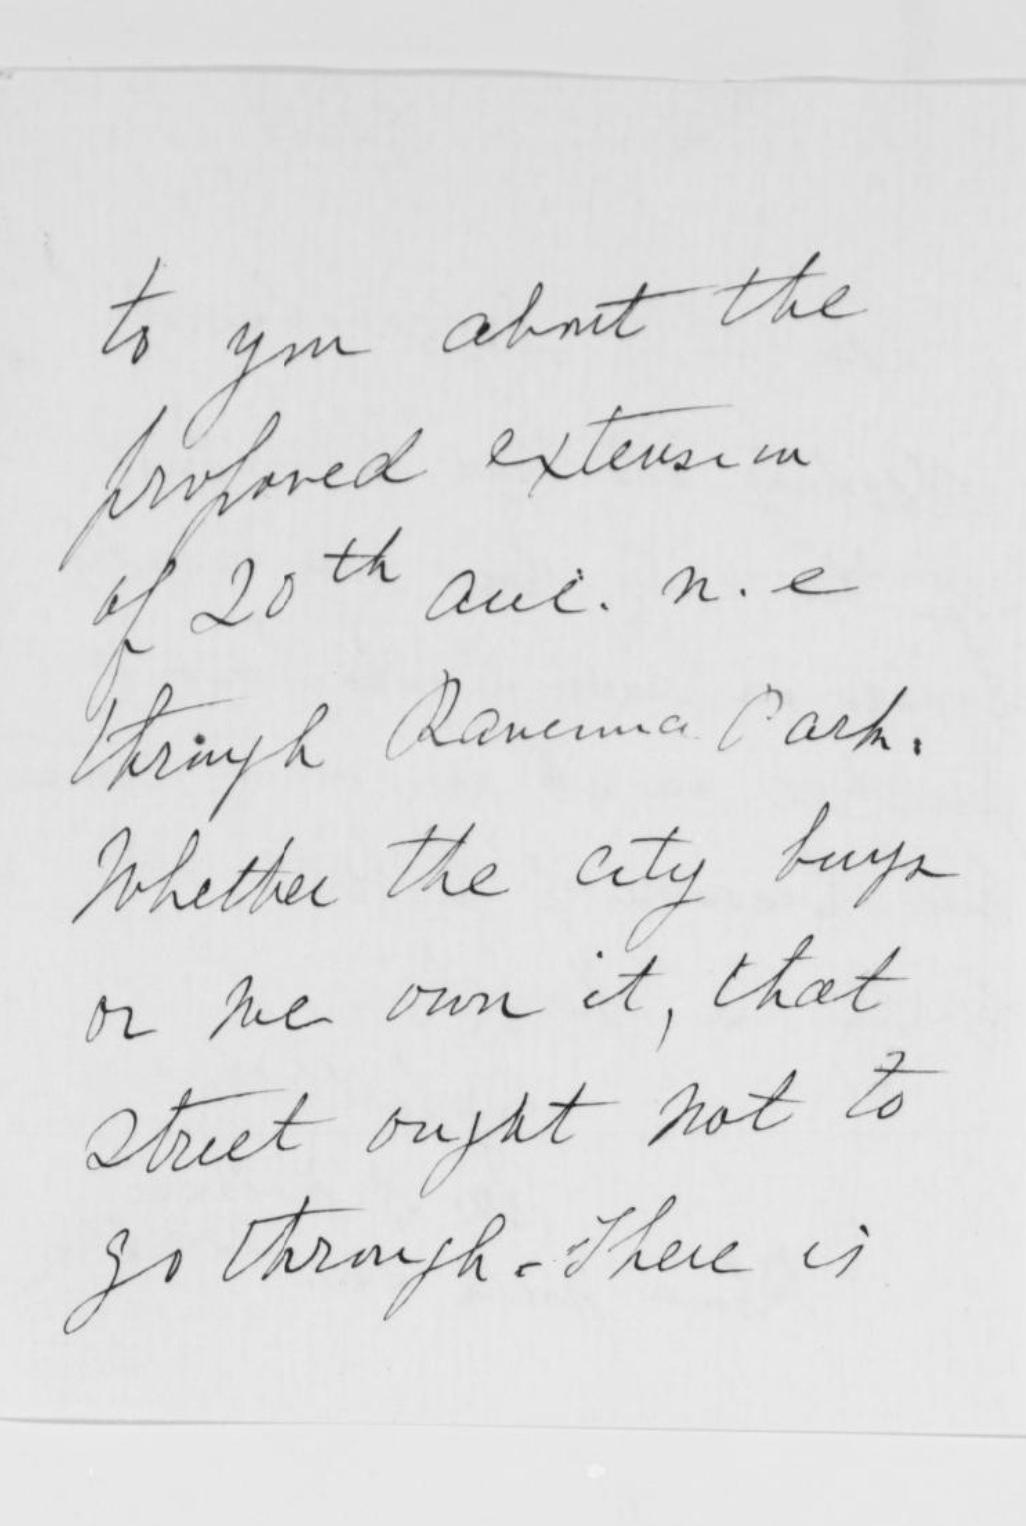 to you about the
proposed extension
of 20th ave. n.e
through Ravenna Park.
Whether the city buys
or we own it, that
street ought not to
go through. There is